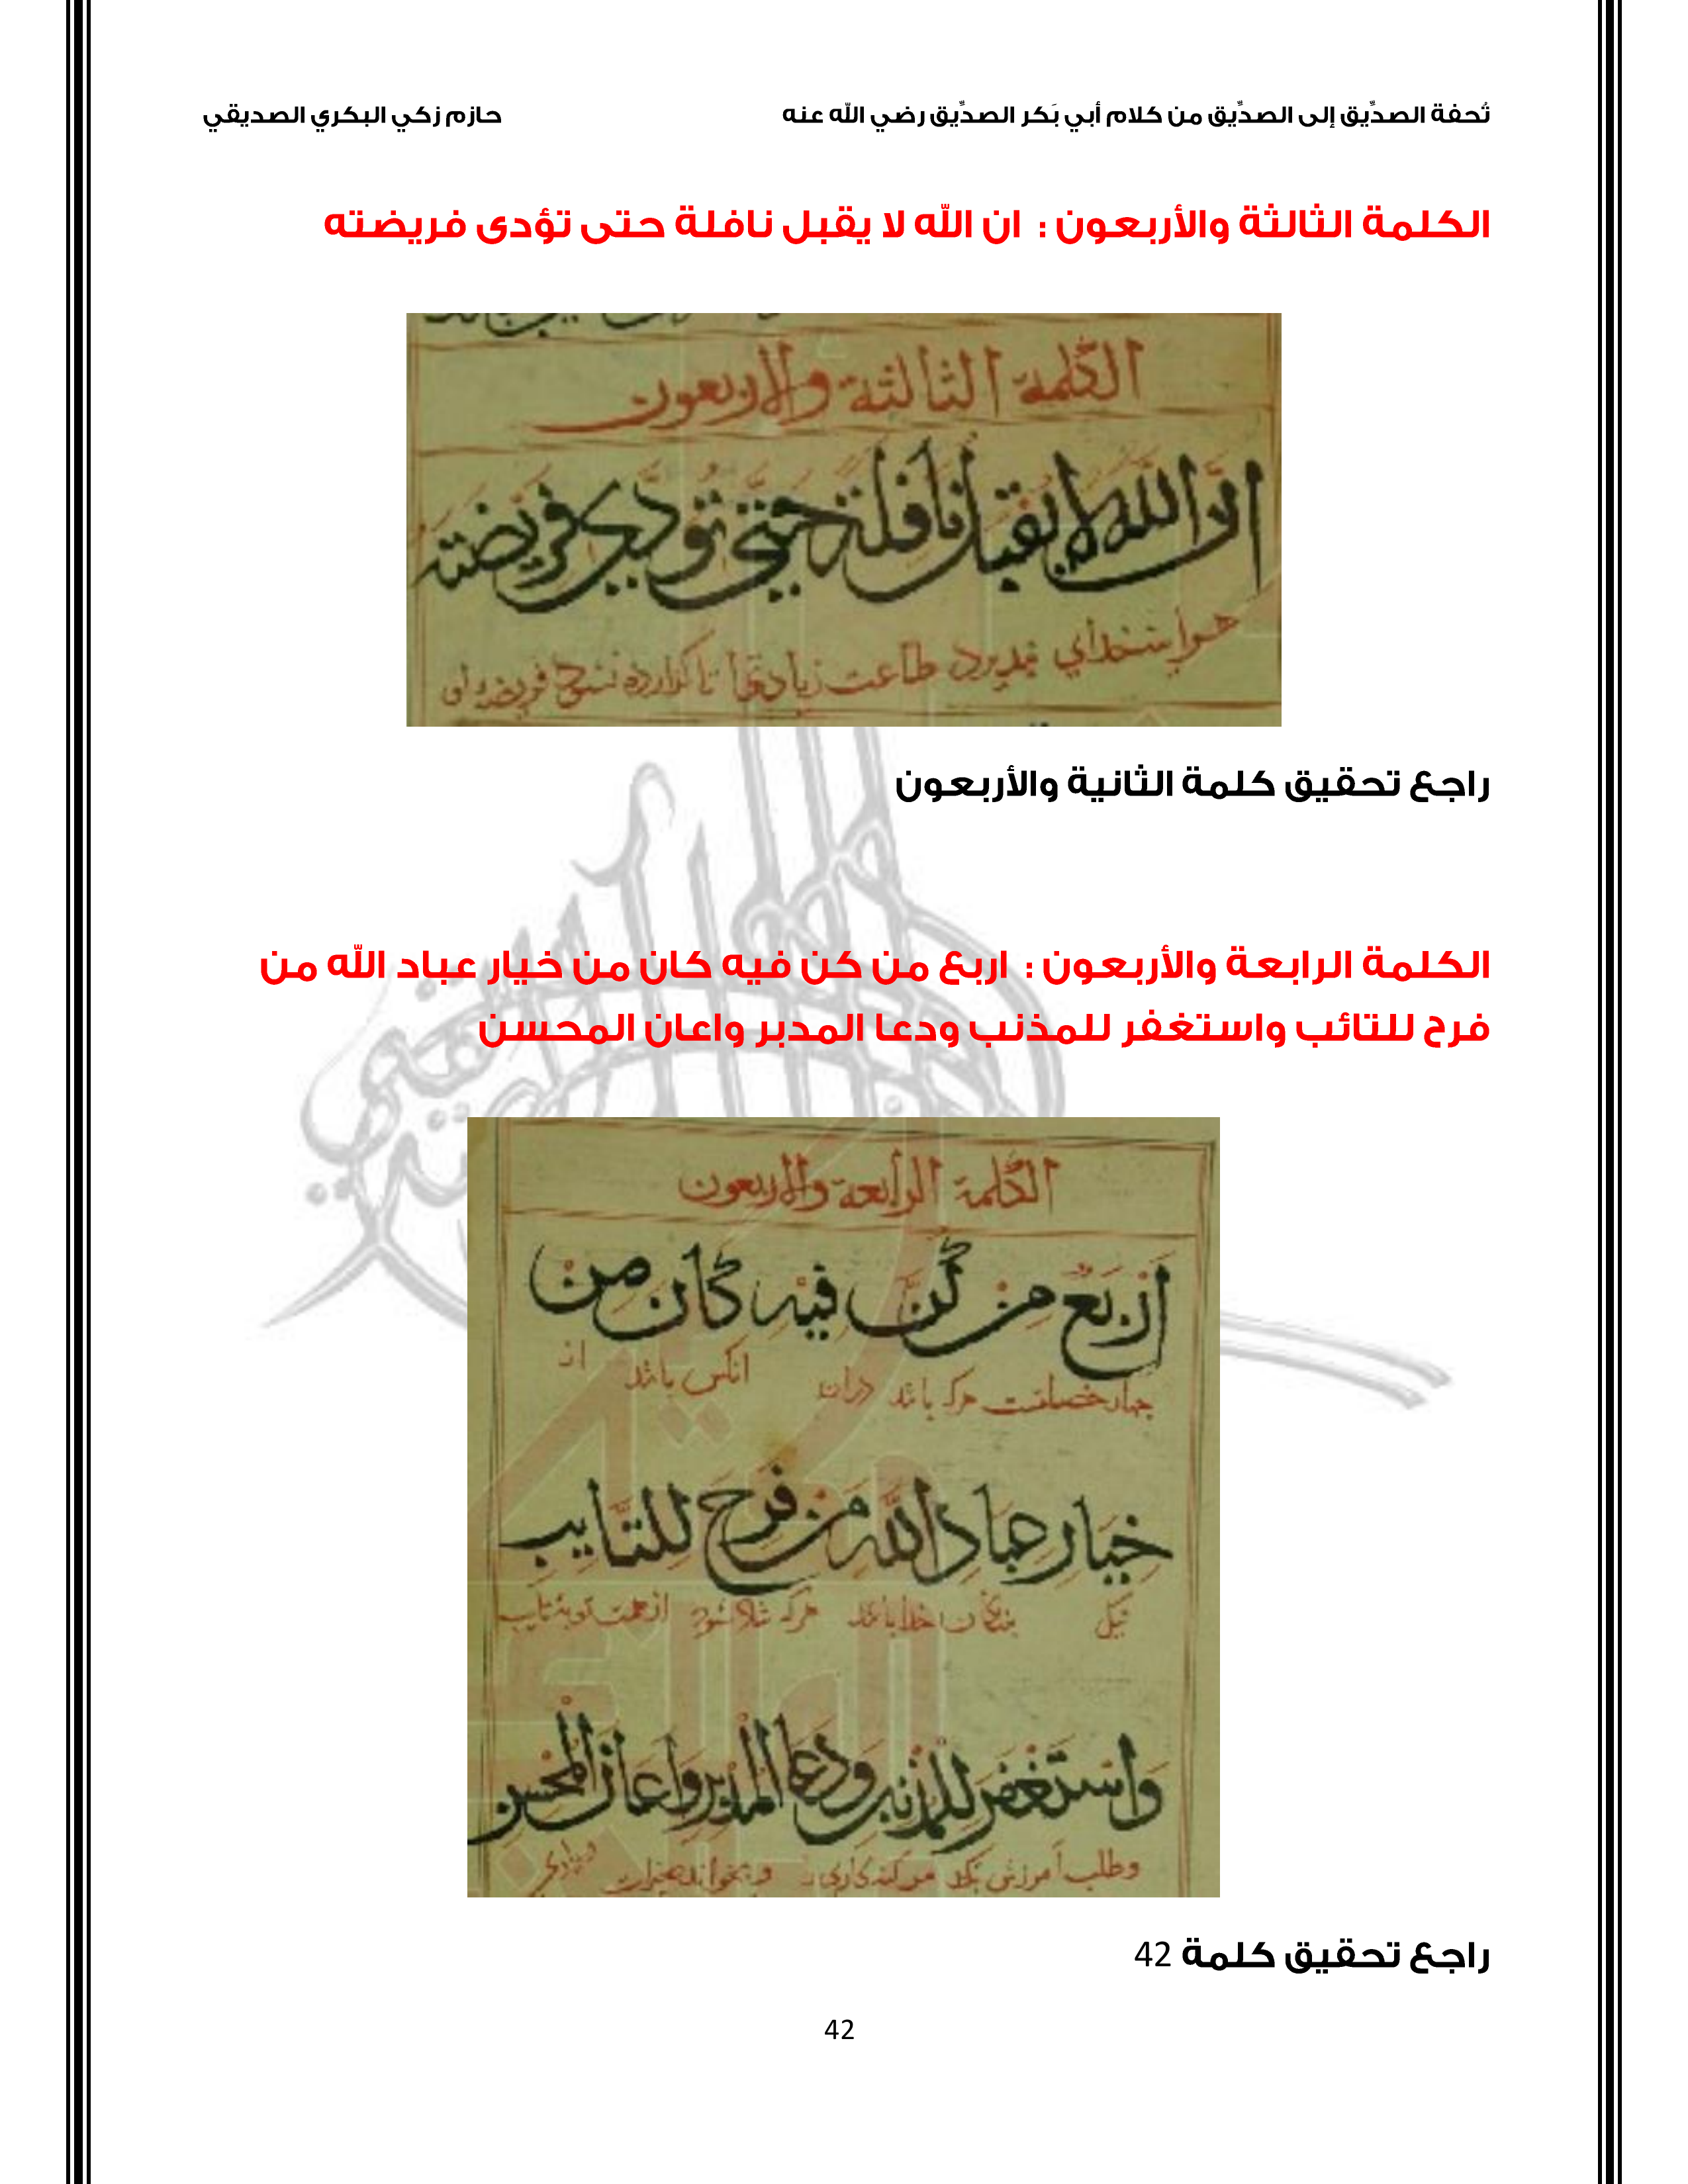 تُحفة الصدِّيق إلى الصدِّيق من كلام أبي بَكر الصدِّيق رضي الله عنه حازم زكي البكري الصديقي
الكلمة الثالثة والأربعون : ان الله لا يقبل نافلة حتى تؤدى فريضته
الكلمة الثالثة والاربعون
ان الله لا يقبل نافلة حتى تودي فريضته
طاعت تا كزارده نشود
راجع تحقيق كلمة الثانية والأربعون
الكلمة الرابعة والأربعون : اربع من كن فيه كان من خيار عباد الله من
فرح للتائب واستغفر للمذنب ودعا المدبر واعان المحسن
الكلمة الرابعة والاربعون
اربع من كن فيه كان من
هركه باشد انكس باشد از
خيار عباد الله من فرح للتايب
هركه
واستغفر للمذنب ودعا المدبر واعان المحسن
وطلب آمرزش كند
راجع تحقيق كلمة 42
42